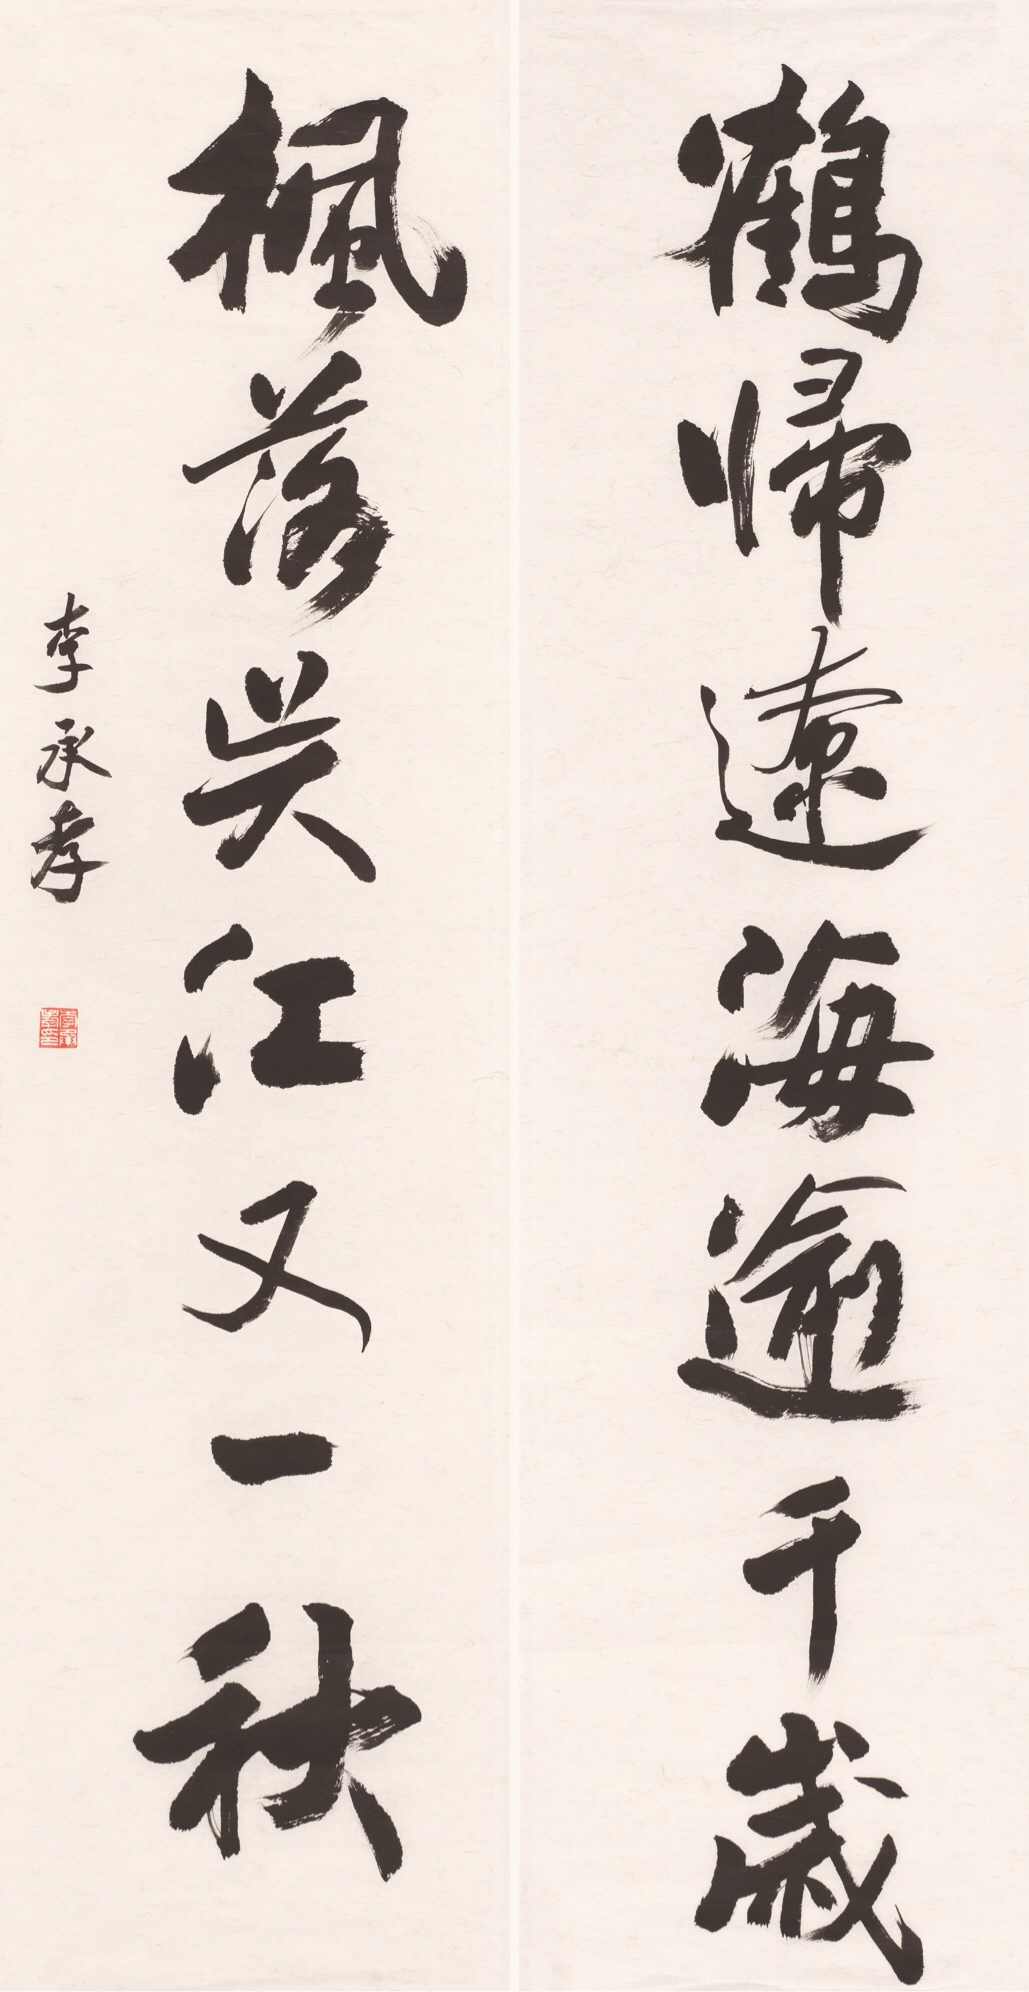 鶴歸遼海逾千歲
楓落吳江又一秋
李承孝
李承孝印